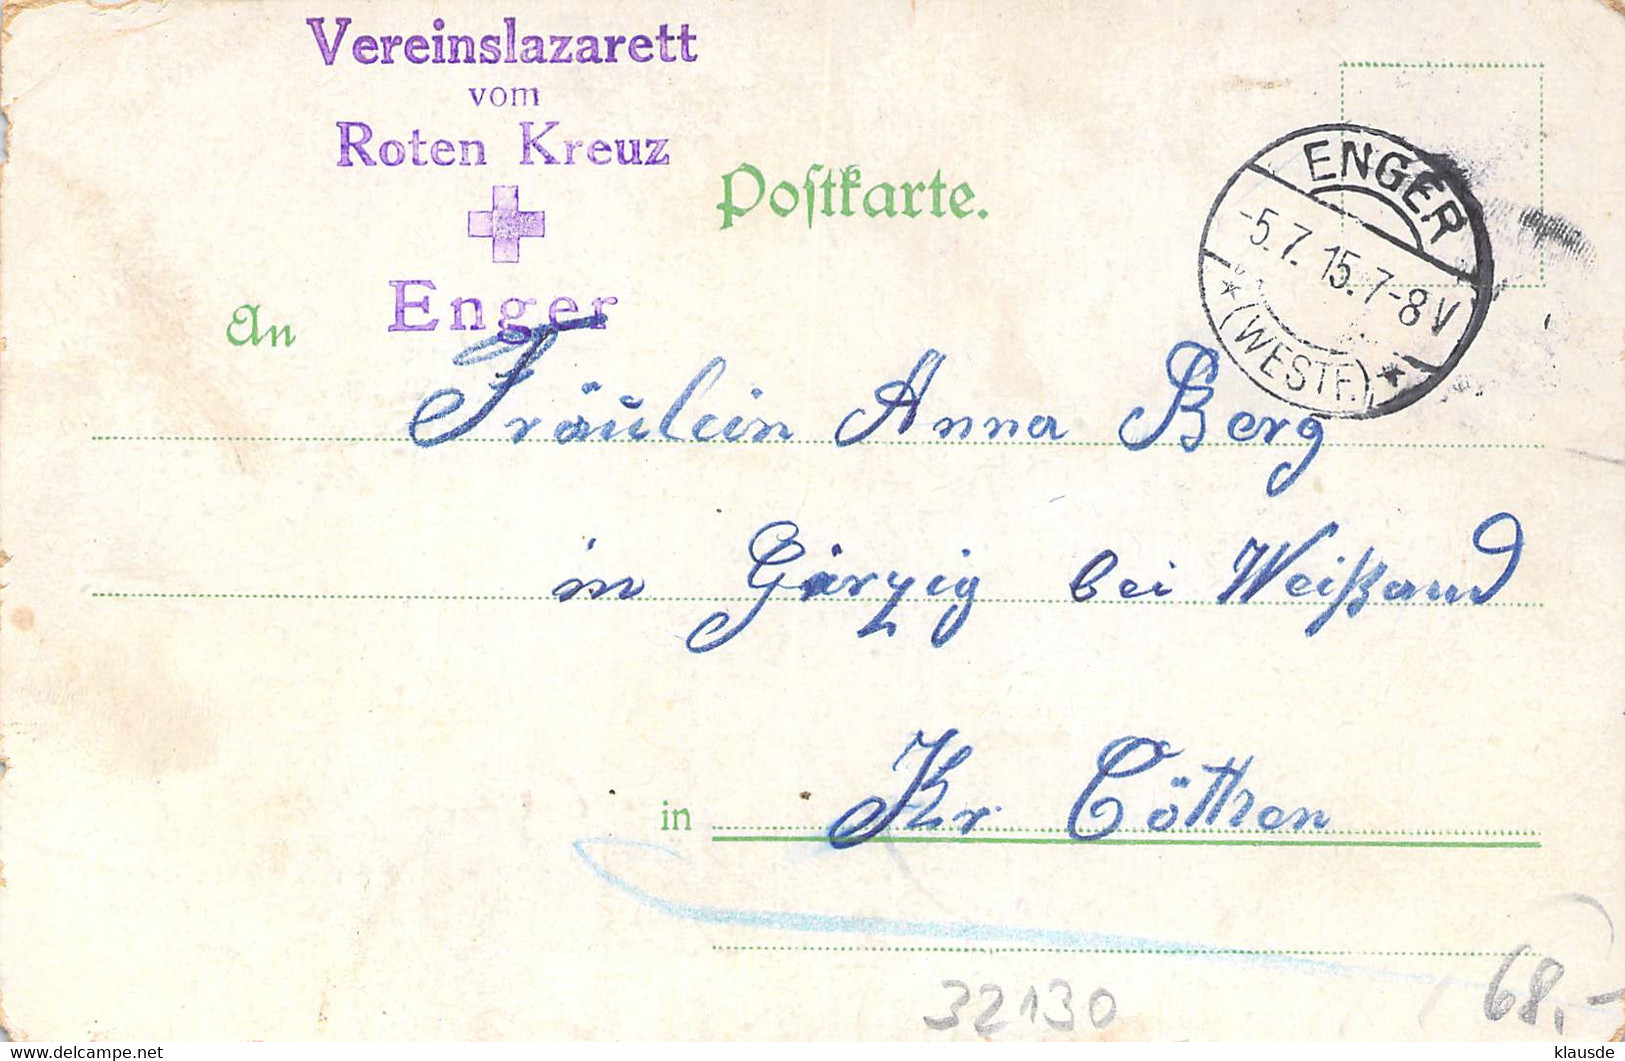 Vereinslazarett
vom
Roten Kreuz
Enger
Postkarte.
ENGER
-5.7.15.7-8V
*(WESTF.)*
An
Fräulein Anna Berg
in Görzig bei Weißand
in Kr Cöthen
32130
68,-
delcampe.net
klausde